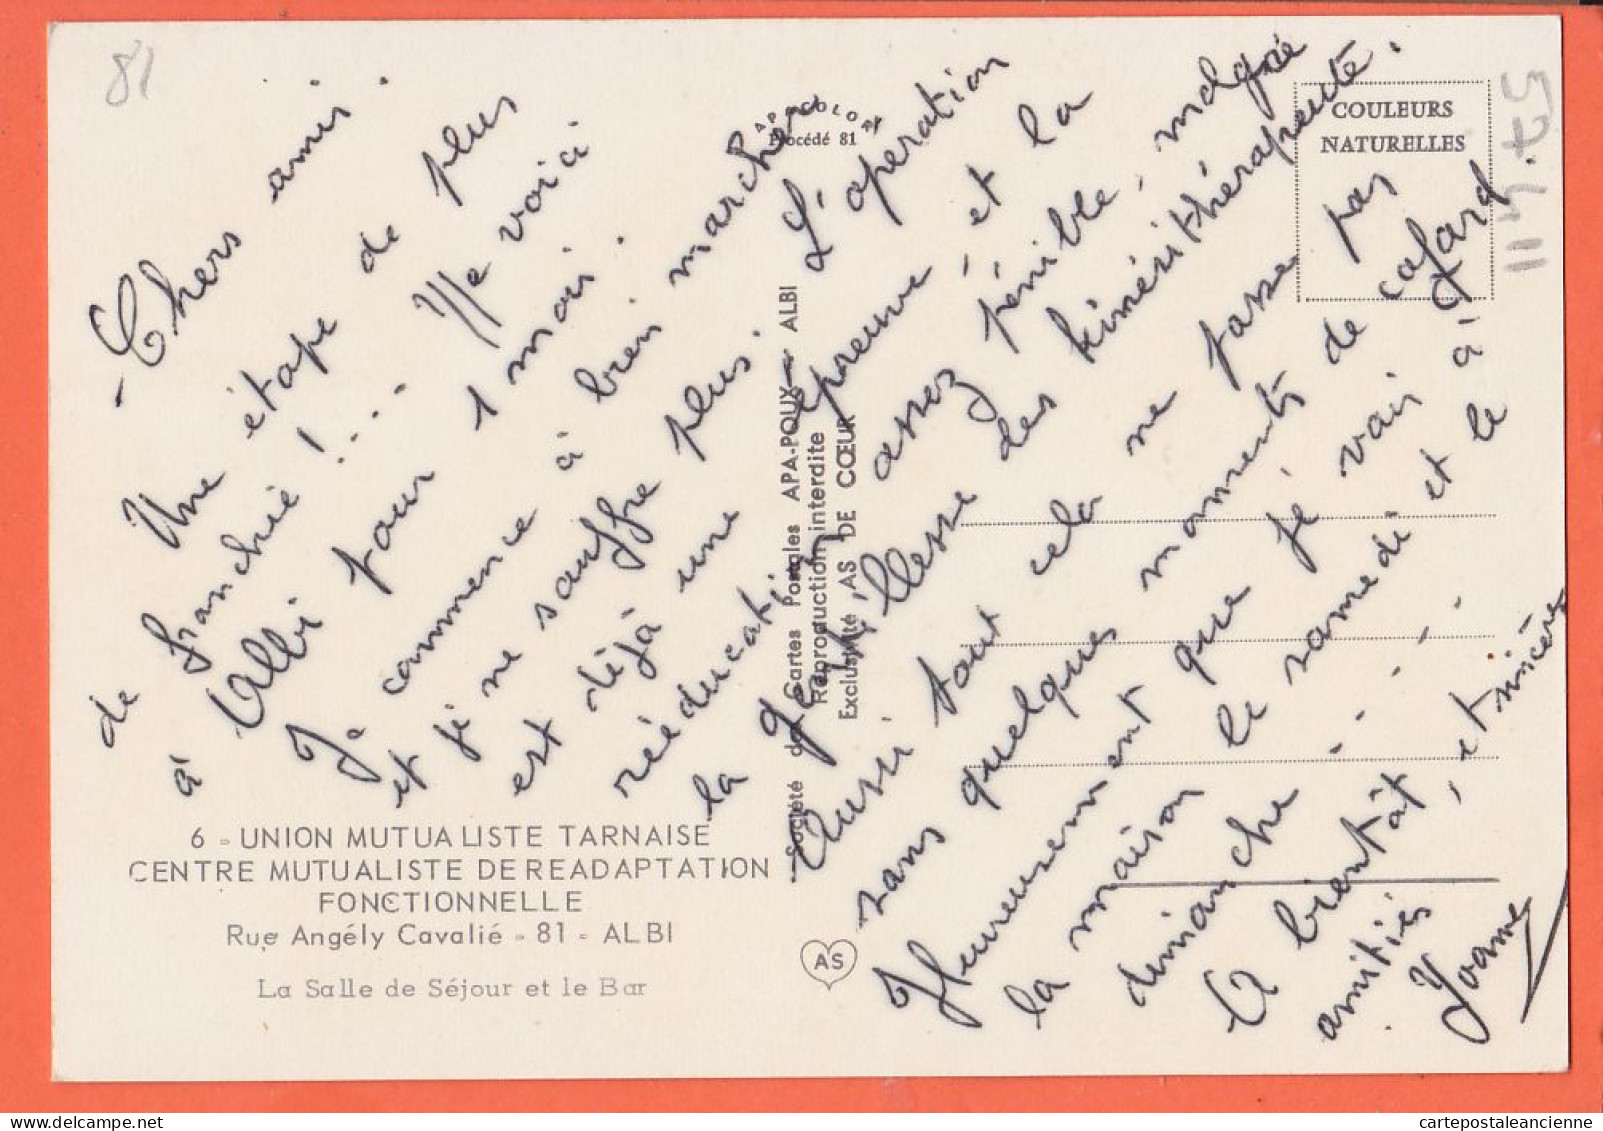 81
57.411
APACOLOR
Procédé 81
COULEURS
NATURELLES
Chers amis.
Une étape de plus
de franchie !... Me voici
à Albi pour 1 mois.
Je commence à bien marcher
et je ne souffre plus. L'opération
est déjà une épreuve et la
rééducation assez pénible, malgré
la gentillesse des kinésithérapeute.
Aussi tout cela ne passe pas
sans quelques moments de cafard.
Heureusement que je vais à
la maison le samedi et le
dimanche .....
A bientôt, et sincères
amitiés
Yoanne
Société de Cartes Postales APA-POUX - ALBI
Reproduction interdite
Exclusivité AS DE CŒUR
AS
6 - UNION MUTUALISTE TARNAISE
CENTRE MUTUALISTE DE READAPTATION
FONCTIONNELLE
Rue Angély Cavalié - 81 - ALBI
La Salle de Séjour et le Bar
cartepostaleancienne